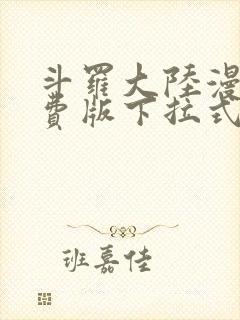 斗羅大陸漫
費版下拉式
班嘉佳